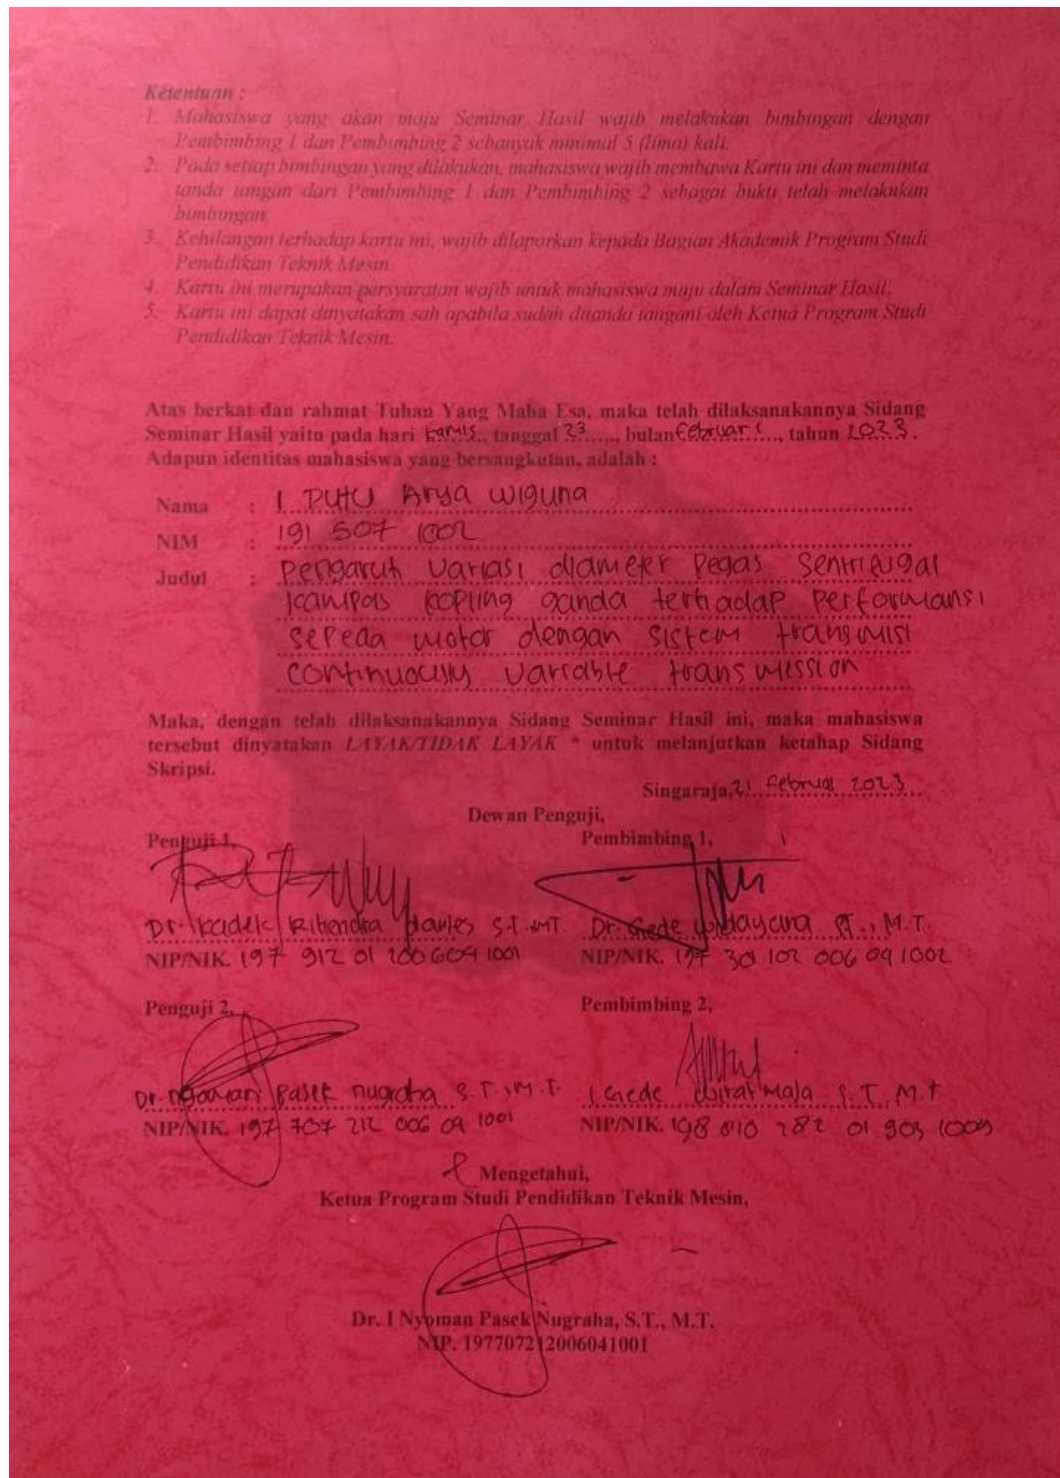 Ketentuan :
1. Mahasiswa yang akan maju Seminar Hasil wajib melakukan bimbingan dengan
Pembimbing 1 dan Pembimbing 2 sebanyak minimal 5 (lima) kali.
2. Pada setiap bimbingan yang dilakukan, mahasiswa wajib membawa Kartu ini dan meminta
tanda tangan dari Pembimbing 1 dan Pembimbing 2 sebagai bukti telah melakukan
bimbingan.
3. Kehilangan terhadap kartu ini, wajib dilaporkan kepada Bagian Akademik Program Studi
Pendidikan Teknik Mesin.
4. Kartu ini merupakan persyaratan wajib untuk mahasiswa maju dalam Seminar Hasil.
5. Kartu ini dapat dinyatakan sah apabila sudah ditanda tangani oleh Ketua Program Studi
Pendidikan Teknik Mesin.
Atas berkat dan rahmat Tuhan Yang Maha Esa, maka telah dilaksanakannya Sidang
Seminar Hasil yaitu pada hari kamis, tanggal 23, bulan Februari, tahun 2023.
Adapun identitas mahasiswa yang bersangkutan, adalah :
Nama : I Putu Arya Wiguna
NIM : 191 507 1002
Judul : Pengaruh variasi diameter pegas sentrifugal
kampas kopling ganda terhadap performansi
sepeda motor dengan sistem transmisi
continuously variable transmission
Maka, dengan telah dilaksanakannya Sidang Seminar Hasil ini, maka mahasiswa
tersebut dinyatakan LAYAK/TIDAK LAYAK * untuk melanjutkan ketahap Sidang
Skripsi.
Singaraja, 21 Februari 2023
Dewan Penguji,
Penguji 1, Pembimbing 1,
Dr. Kadek Rihendra Dantes S.T., MT. Dr. Gede Widayana ST., M.T.
NIP/NIK. 197 912 01 200604 1001 NIP/NIK. 197 30 102 006 04 1002
Penguji 2, Pembimbing 2,
Dr. Nyoman Pasek Nugraha S.T., M.T. I Gede Wiratmaja S.T, M.T
NIP/NIK. 197 707 212 006 04 1001 NIP/NIK. 198 810 282 01 903 1009
Mengetahui,
Ketua Program Studi Pendidikan Teknik Mesin,
Dr. I Nyoman Pasek Nugraha, S.T., M.T.
NIP. 197707212006041001